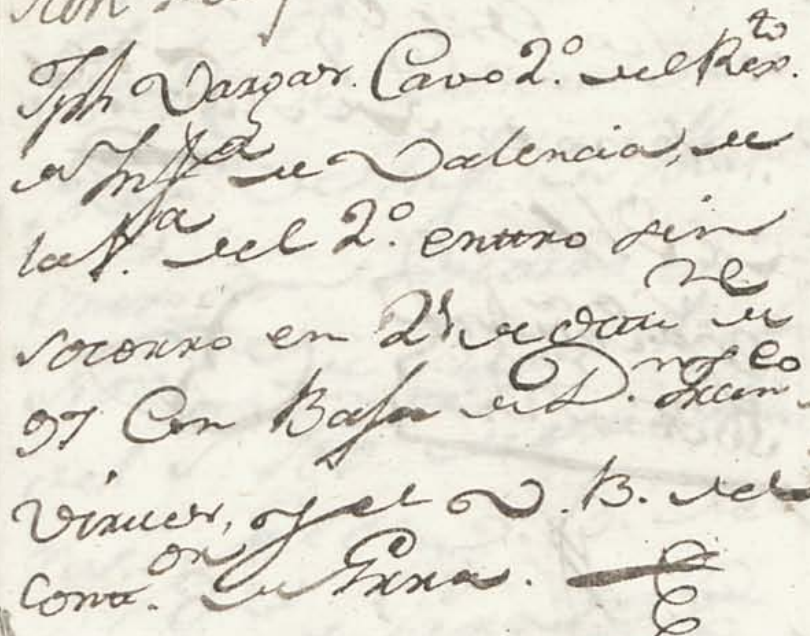 Jph Vargas. Cavo 2º. del Rexto.
de Infª de Valencia, de
la Fª. del 2º. entro sin
socorro en 21 de octure de
97 Con Baja de Dn. Francо
Viruer, y el V. B. del
Contor. de Grra.